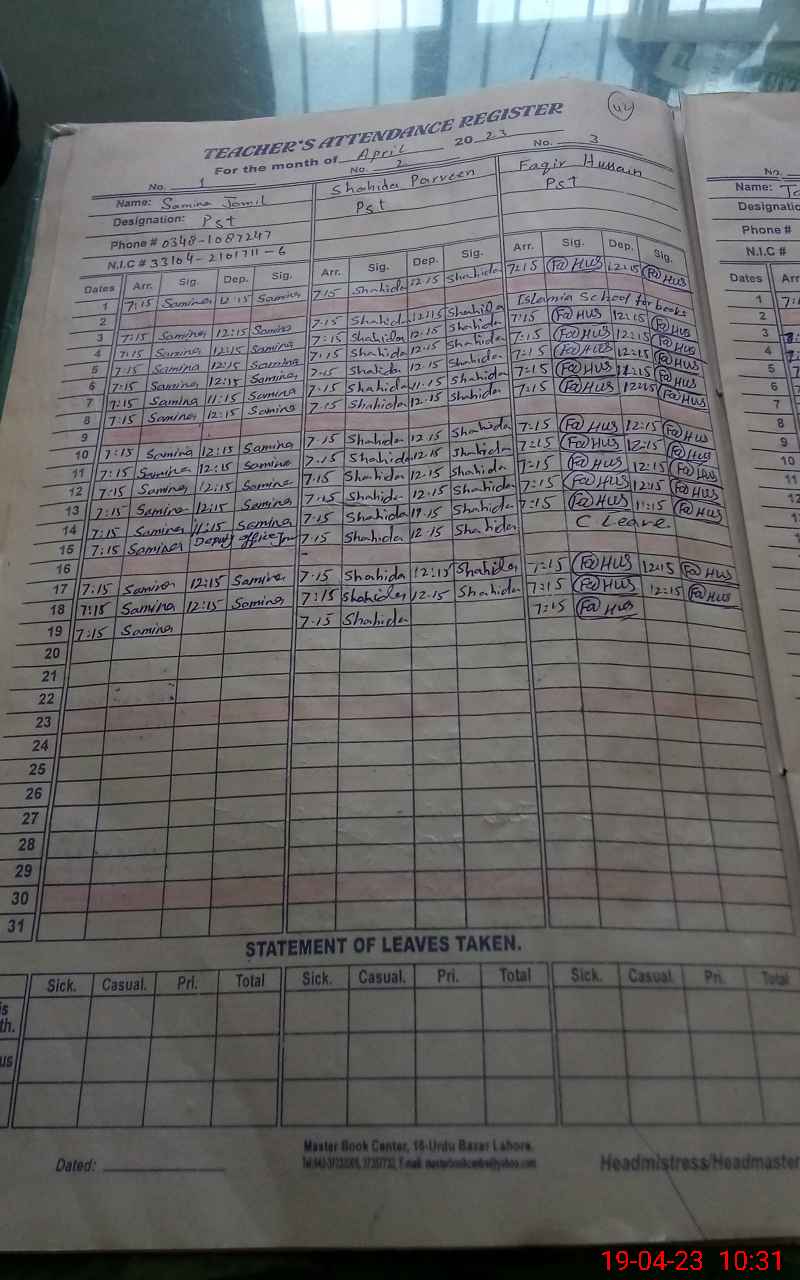 44
TEACHER'S ATTENDANCE REGISTER
For the month of April 2023
No. 1 No. 2 No. 3
Name: Samina Jamil Shahida Parveen Faqir Hussain
Designation: Pst Pst Pst
Phone # 0348-1087247
N.I.C # 33104-2101711-6
Dates Arr. Sig. Dep. Sig. Arr. Sig. Dep. Sig. Arr. Sig. Dep. Sig.
1 7:15 Samina 12:15 Samina 7.15 Shahida 12.15 Shahida 7:15 Fa HUS 12:15 Fa HUS
2
3 7:15 Samina 12:15 Samina 7.15 Shahida 12:15 Shahida Islamia School for books
4 7:15 Samina 12:15 Samina 7:15 Shahida 12.15 Shahida 7:15 Fa HUS 12:15 Fa HUS
5 7:15 Samina 12:15 Samina 7.15 Shahida 12.15 Shahida 7:15 Fa HUS 12:15 Fa HUS
6 7:15 Samina 12:15 Samina 7.15 Shahida 12.15 Shahida 7:15 Fa HUS 12:15 Fa HUS
7 7:15 Samina 11:15 Samina 7.15 Shahida 11.15 Shahida 7:15 Fa HUS 11:15 Fa HUS
8 7:15 Samina 12:15 Samina 7.15 Shahida 12.15 Shahida 7:15 Fa HUS 12:15 Fa HUS
9
10 7:15 Samina 12:15 Samina 7.15 Shahida 12.15 Shahida 7:15 Fa HUS 12:15 Fa HUS
11 7:15 Samina 12:15 Samina 7.15 Shahida 12.15 Shahida 7:15 Fa HUS 12:15 Fa HUS
12 7:15 Samina 12:15 Samina 7.15 Shahida 12.15 Shahida 7:15 Fa HUS 12:15 Fa HUS
13 7:15 Samina 12:15 Samina 7.15 Shahida 12.15 Shahida 7:15 Fa HUS 12:15 Fa HUS
14 7:15 Samina 11:15 Samina 7.15 Shahida 11.15 Shahida 7:15 Fa HUS 11:15 Fa HUS
15 7:15 Samina Deputy office 7.15 Shahida 12.15 Shahida C Leave.
16
17 7:15 Samina 12:15 Samina 7.15 Shahida 12:15 Shahida 7:15 Fa HUS 12:15 Fa HUS
18 7:15 Samina 12:15 Samina 7:15 Shahida 12.15 Shahida 7:15 Fa HUS 12:15 Fa HUS
19 7:15 Samina 7.15 Shahida 7:15 Fa HUS
20
21
22
23
24
25
26
27
28
29
30
31
STATEMENT OF LEAVES TAKEN.
Sick. Casual. Pri. Total Sick. Casual. Pri. Total Sick. Casual. Pri. Total
is
th.
us
Master Book Center, 16-Urdu Bazar Lahore.
Dated: Headmistress/Headmaster
No.
Name:
Designatio
Phone #
N.I.C #
Dates Arr
1
2
3
4
5
6
7
8
9
10
11
12
13
14
15
16
17
18
19-04-23 10:31